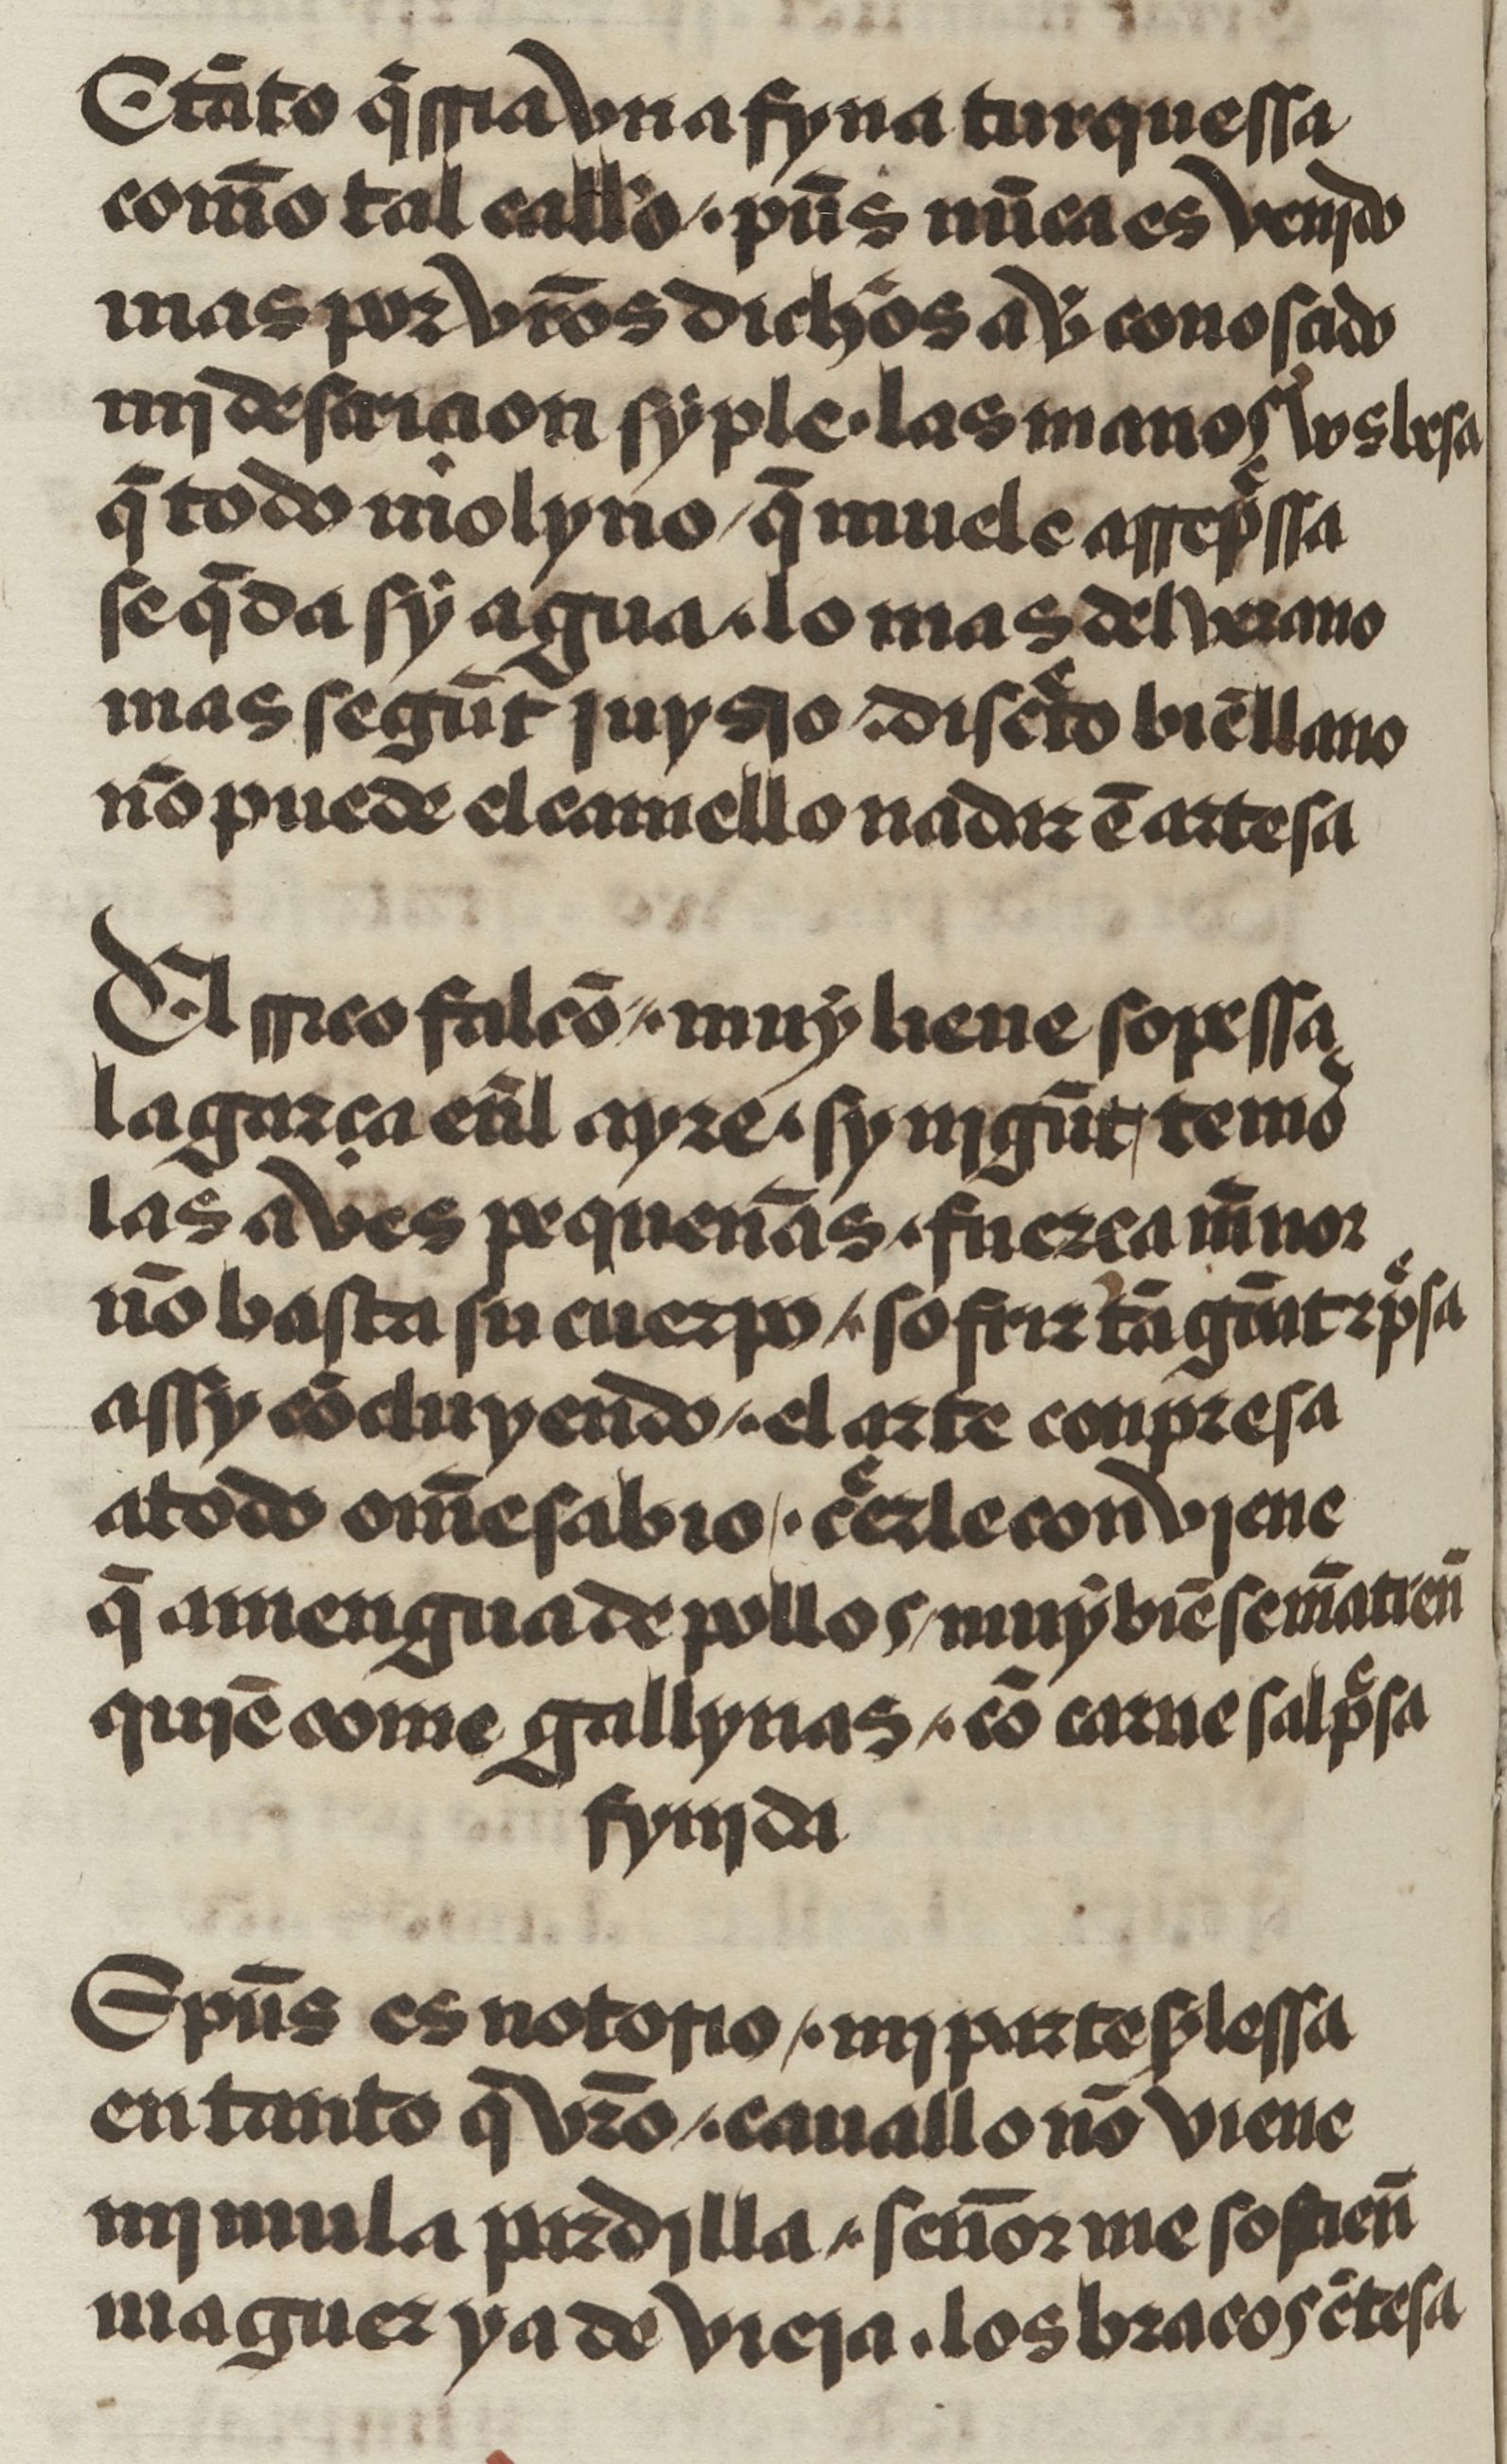 Etãto q̃rria vna fyna turquessa
com̃o tal callo /. pũs nũca es venjdo
mas por vr̃os dichos avẽ conoscido
mj descricion sỹple . las manos vos besa
q̃ todo molyno / q̃ muele arrep̃ssa
se q̃da sỹ agua /. lo mas del verano
mas segũt juysio /. discreto biẽ llano
nõ puede el camello nadar ẽ artesa
El rrico falcõ /. muỹ liene sopessa
la garça eñl ayre . sy njgũt temor
las aves pequeñas . fuerça mẽnor
nõ basta su cuerpo /. sofrir tã grãnt rp̃sa
assy cõcluyendo /. el arte conpresa
a todo om̃e sabio /. cẽr le convjene
q̃ amengua de pollos / muỹ biẽ se mãtien̄
qujẽ come gallynas /. cõ carne salp̃sa
fynjda
E pũs es notorio /. mj parte sỹ lessa
en tanto q̃ vr̃o /. cauallo nõ viene
mj mula pardilla /. señor me sostien̄
maguer ya de vieja . los braços ẽtesa